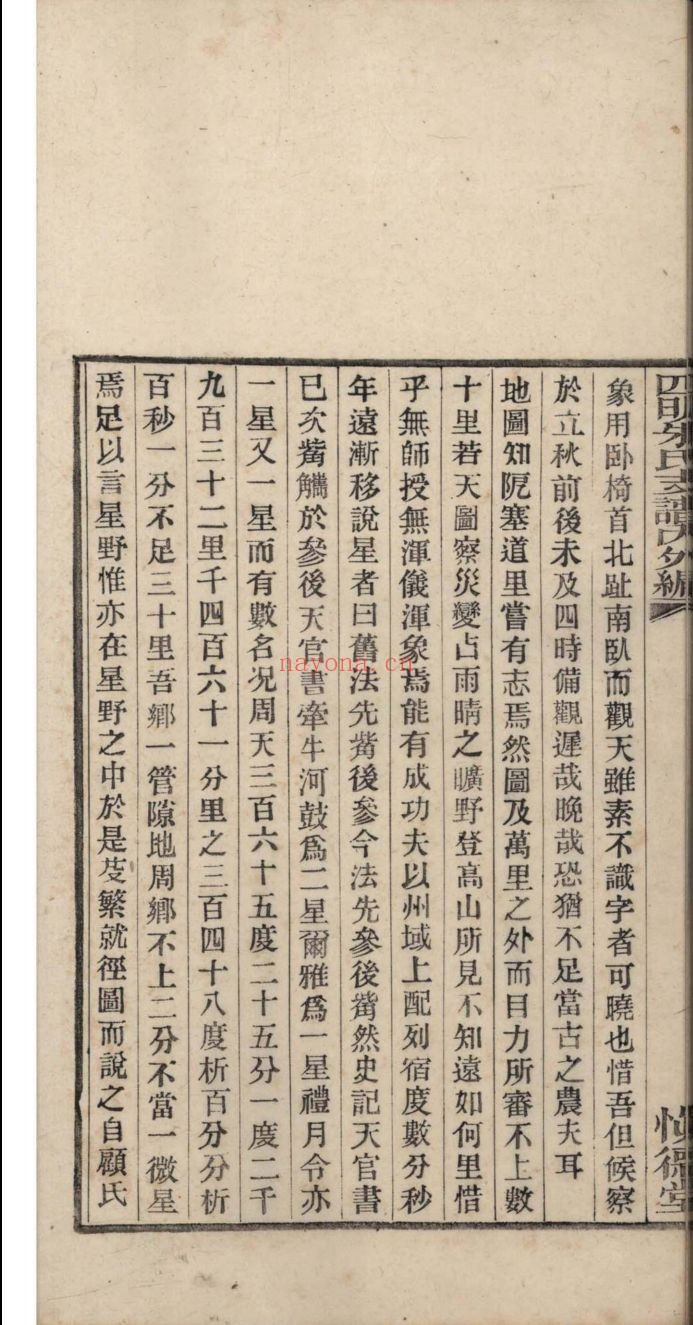 四明朱氏支譜內外編
慎德堂
象用卧椅首北趾南臥而觀天雖素不識字者可曉也惜吾但候察
於立秋前後未及四時備觀遲哉晚哉恐猶不足當古之農夫耳
地圖知阨塞道里嘗有志焉然圖及萬里之外而目力所審不上數
十里若天圖察災變占雨晴之曠野登高山所見不知遠如何里惜
乎無師授無渾儀渾象焉能有成功夫以州域上配列宿度數分秒
年遠漸移說星者曰舊法先觜後參今法先參後觜然史記天官書
已次觜觿於參後天官書牽牛河鼓爲二星爾雅爲一星禮月令亦
一星又一星而有數名况周天三百六十五度二十五分一度二千
九百三十二里千四百六十一分里之三百四十八度析百分分析
百秒一分不足三十里吾鄉一管隙地周鄉不上二分不當一微星
焉足以言星野惟亦在星野之中於是芟繁就徑圖而說之自顧氏
nayona.cn